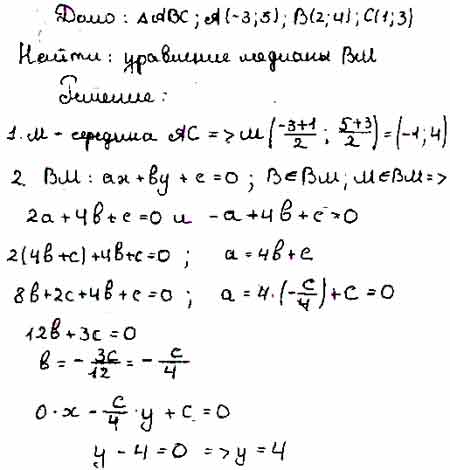 Дано: ΔABC; A(-3;5); B(2;4); C(1;3)
Найти: уравнение медианы BM
Решение:
1. M - середина AC => M(-3+1/2; 5+3/2) = (-1;4)
2. BM: ax+by+c=0; B∈BM; M∈BM =>
2a+4b+c=0 и -a+4b+c=0
2(4b+c)+4b+c=0; a=4b+c
8b+2c+4b+c=0; a=4·(-c/4)+c=0
12b+3c=0
b=-3c/12=-c/4
0·x-c/4·y+c=0
y-4=0 => y=4